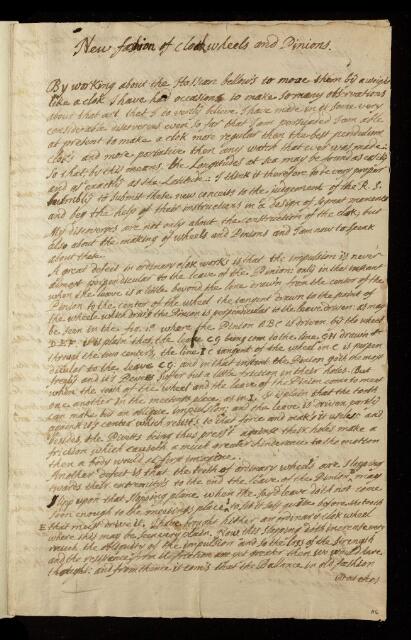 New fashion of clok wheels and Pinions.
By working about the Hessian bellows to move them by a weight
like a clok I have had occasions to make so many observations
about that art, that I so verily believe I have made in it some very
considerable discoveries even so far that I am perswaded I am able
at present to make a clok more regular then the best pendulum
cloks and more portative then any watch that ever was made:
so that by this means the Longitudes at sea may be found as easily
and as exactly as the Latitude: I think it therefore to be very proper
humbly to submit these new conceits to the judgement of the R. S.
and beg the help of their instructions in a design of so great moment
My discoveries are not only about the construction of the clok, but
also about the making of wheels and Pinions and I am now to speak
about these.
A great defect in ordinary clok works is that the impulsion is never
almost perpendicular to the leave of the Pinions only in that instant
when the leave is a little beyond the line drawn from the center of the
Pinion to the center of the wheel the tangent drawn to the point of
the wheele which drives the Pinion is perpendicular to the leave driven: as may
be seen in the fig. 1st where the Pinion ABC is driven by the wheel
DEF it is plain that the leave CG being com to the line GH drawn
through the two centers, the line IC tangent of the wheel on C is perpen
dicular to the leave CG. and in that instant the Pinion goth the more
freely and it's Pevots suffer but a little friction in their holes. But
when the tooth of the wheel and the leave of the Pinion come to meet
one another in the meeting place, as in I, it is plain that the tooth
can make but an oblique impulsion, and the leave is driven partly
against it's center which resists to that force and makes it useless and
besides, the Pivots being thus prest against their holes make a
friction which causeth a much greater hinderence to the motion
then a body would at first imagine.
Another defect is that the teeth of ordinary wheels are sloaping
towards their extremitys to the end the leave of the Pinion may
slipp upon that sloaping plane when the sayd leave doth not come
soon enough to the meeting place
E that must drive it. I have brought hither an ordinary clok wheel
where this may be seen very plain. Now this sloaping doth increase very
much the obliquity of the impulsion and so the loss of the strength
and the resistance from the friction are yet greater then we would have
thought: and from thence it coms that the Ballance in old fashion
watches